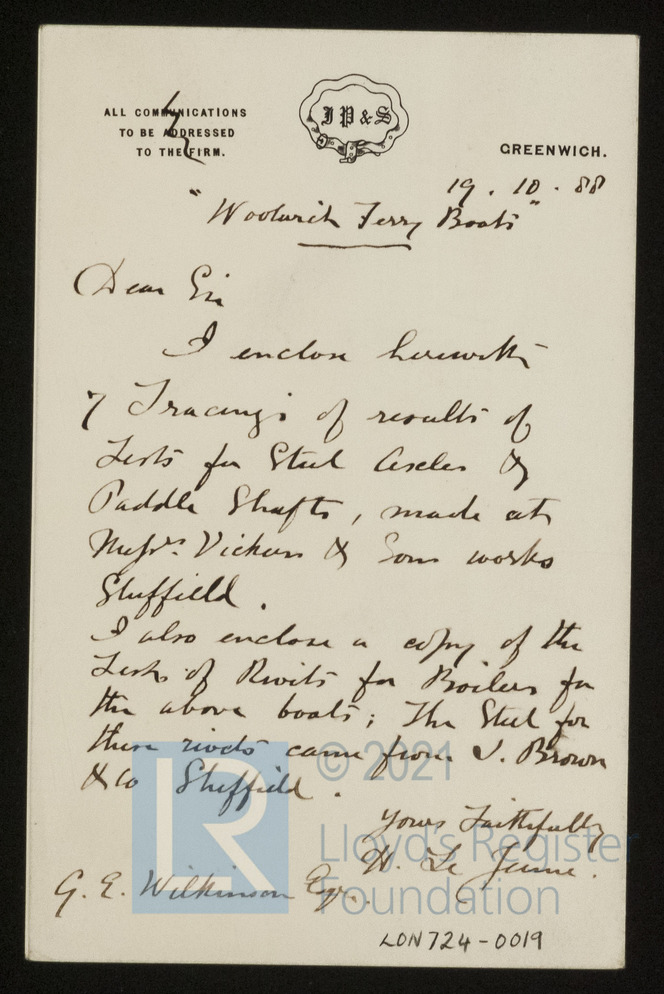 ALL COMMUNICATIONS
TO BE ADDRESSED
TO THE FIRM.
J P & S
GREENWICH.
19 . 10 . 88
"Woolwich Ferry Boats"
Dear Sir
I enclose herewith
7 Tracings of results of
Tests for Steel Axles &
Paddle Shafts, made at
Messrs. Vickers & Sons works
Sheffield.
I also enclose a copy of the
Tests of Rivits for Boilers for
the above boats; The Steel for
these rivets came from J. Brown
& Co Sheffield.
Yours Faithfully
H. Le Jeune.
G. E. Wilkinson Esqr.
LON724-0019
LR
© 2021
Lloyd's Register
Foundation